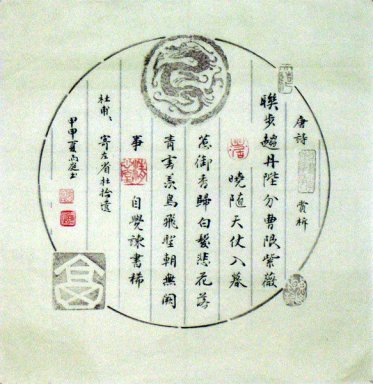 唐詩 賞析
聯步趨丹陛分曹限紫薇
曉随天仗入暮
惹御香歸白髮悲花落
青雲羨鳥飛聖朝無闕
事 自覺諫書稀
杜甫
寄左省杜拾遺
甲申夏